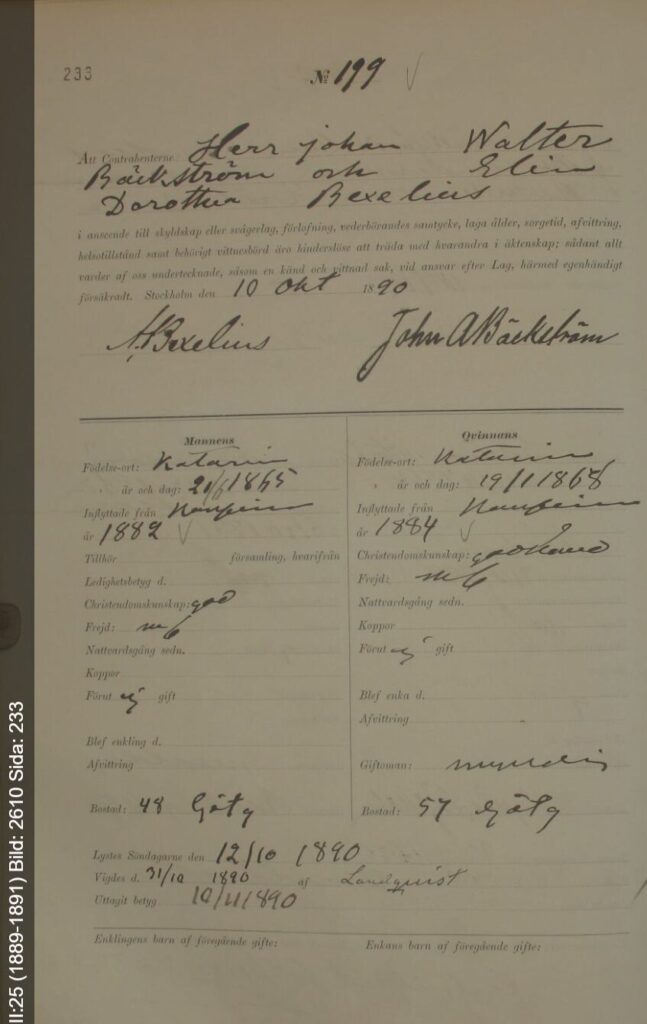 233
№ 199
Att Contrahenterne Herr Johan Walter
Bäckström och Elin
Dorothea Bexelius
i anseende till skyldskap eller svägerlag, förlofning, vederbörandes samtycke, laga ålder, sorgetid, afvittring,
helsotillstånd samt behörigt vittnesbörd äro hinderslöse att träda med hvarandra i äktenskap; sådant allt
varder af oss undertecknade, såsom en känd och vittnad sak, vid ansvar efter Lag, härmed egenhändigt
försäkradt. Stockholm den 10 Okt 1890
Bexelius John A Bäckström
Mannens
Födelse-ort: Katarin
" år och dag: 1865
Inflyttade från
år 1882
Tillhör församling, hvarifrån
Ledighetsbetyg d.
Christendomskunskap: god
Frejd:
Nattvardsgång sedn.
Koppor
Förut ej gift
Blef enkling d.
Afvittring
Bostad: 48 Götg
Qvinnans
Födelse-ort: Katarin
" år och dag: 19/1 1868
Inflyttade från
år 1884
Christendomskunskap:
Frejd:
Nattvardsgång sedn.
Koppor
Förut ej gift
Blef enka d.
Afvittring
Giftoman: myndig
Bostad: 57 Götg
Lystes Söndagarne den 12/10 1890
Vigdes d. 31/10 1890 af Landquist
Uttagit betyg 10/11 1890
Enklingens barn af föregående gifte:
Enkans barn af föregående gifte:
II:25 (1889-1891) Bild: 2610 Sida: 233